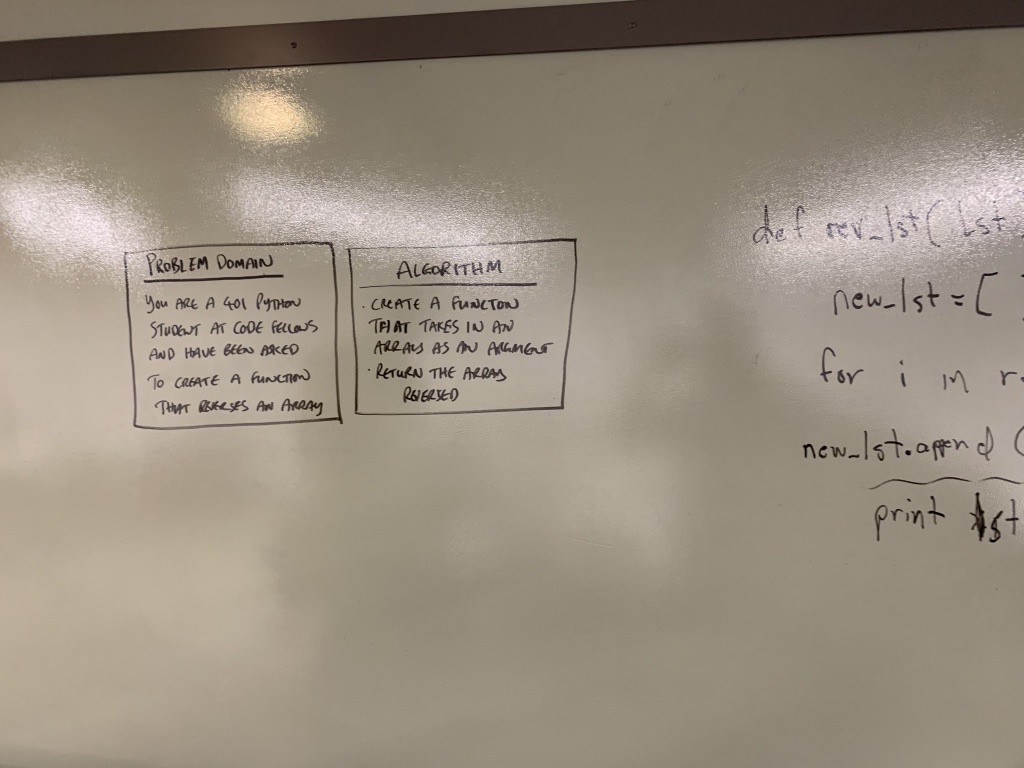 PROBLEM DOMAIN
YOU ARE A 401 PYTHON
STUDENT AT CODE FELLOWS
AND HAVE BEEN ASKED
TO CREATE A FUNCTION
THAT REVERSES AN ARRAY
ALGORITHM
· CREATE A FUNCTION
THAT TAKES IN AN
ARRAY AS AN ARGMENT
· RETURN THE ARRAY
REVERSED
def rev_lst( lst
new_lst = [ ]
for i in r
new_lst.append (
print lst